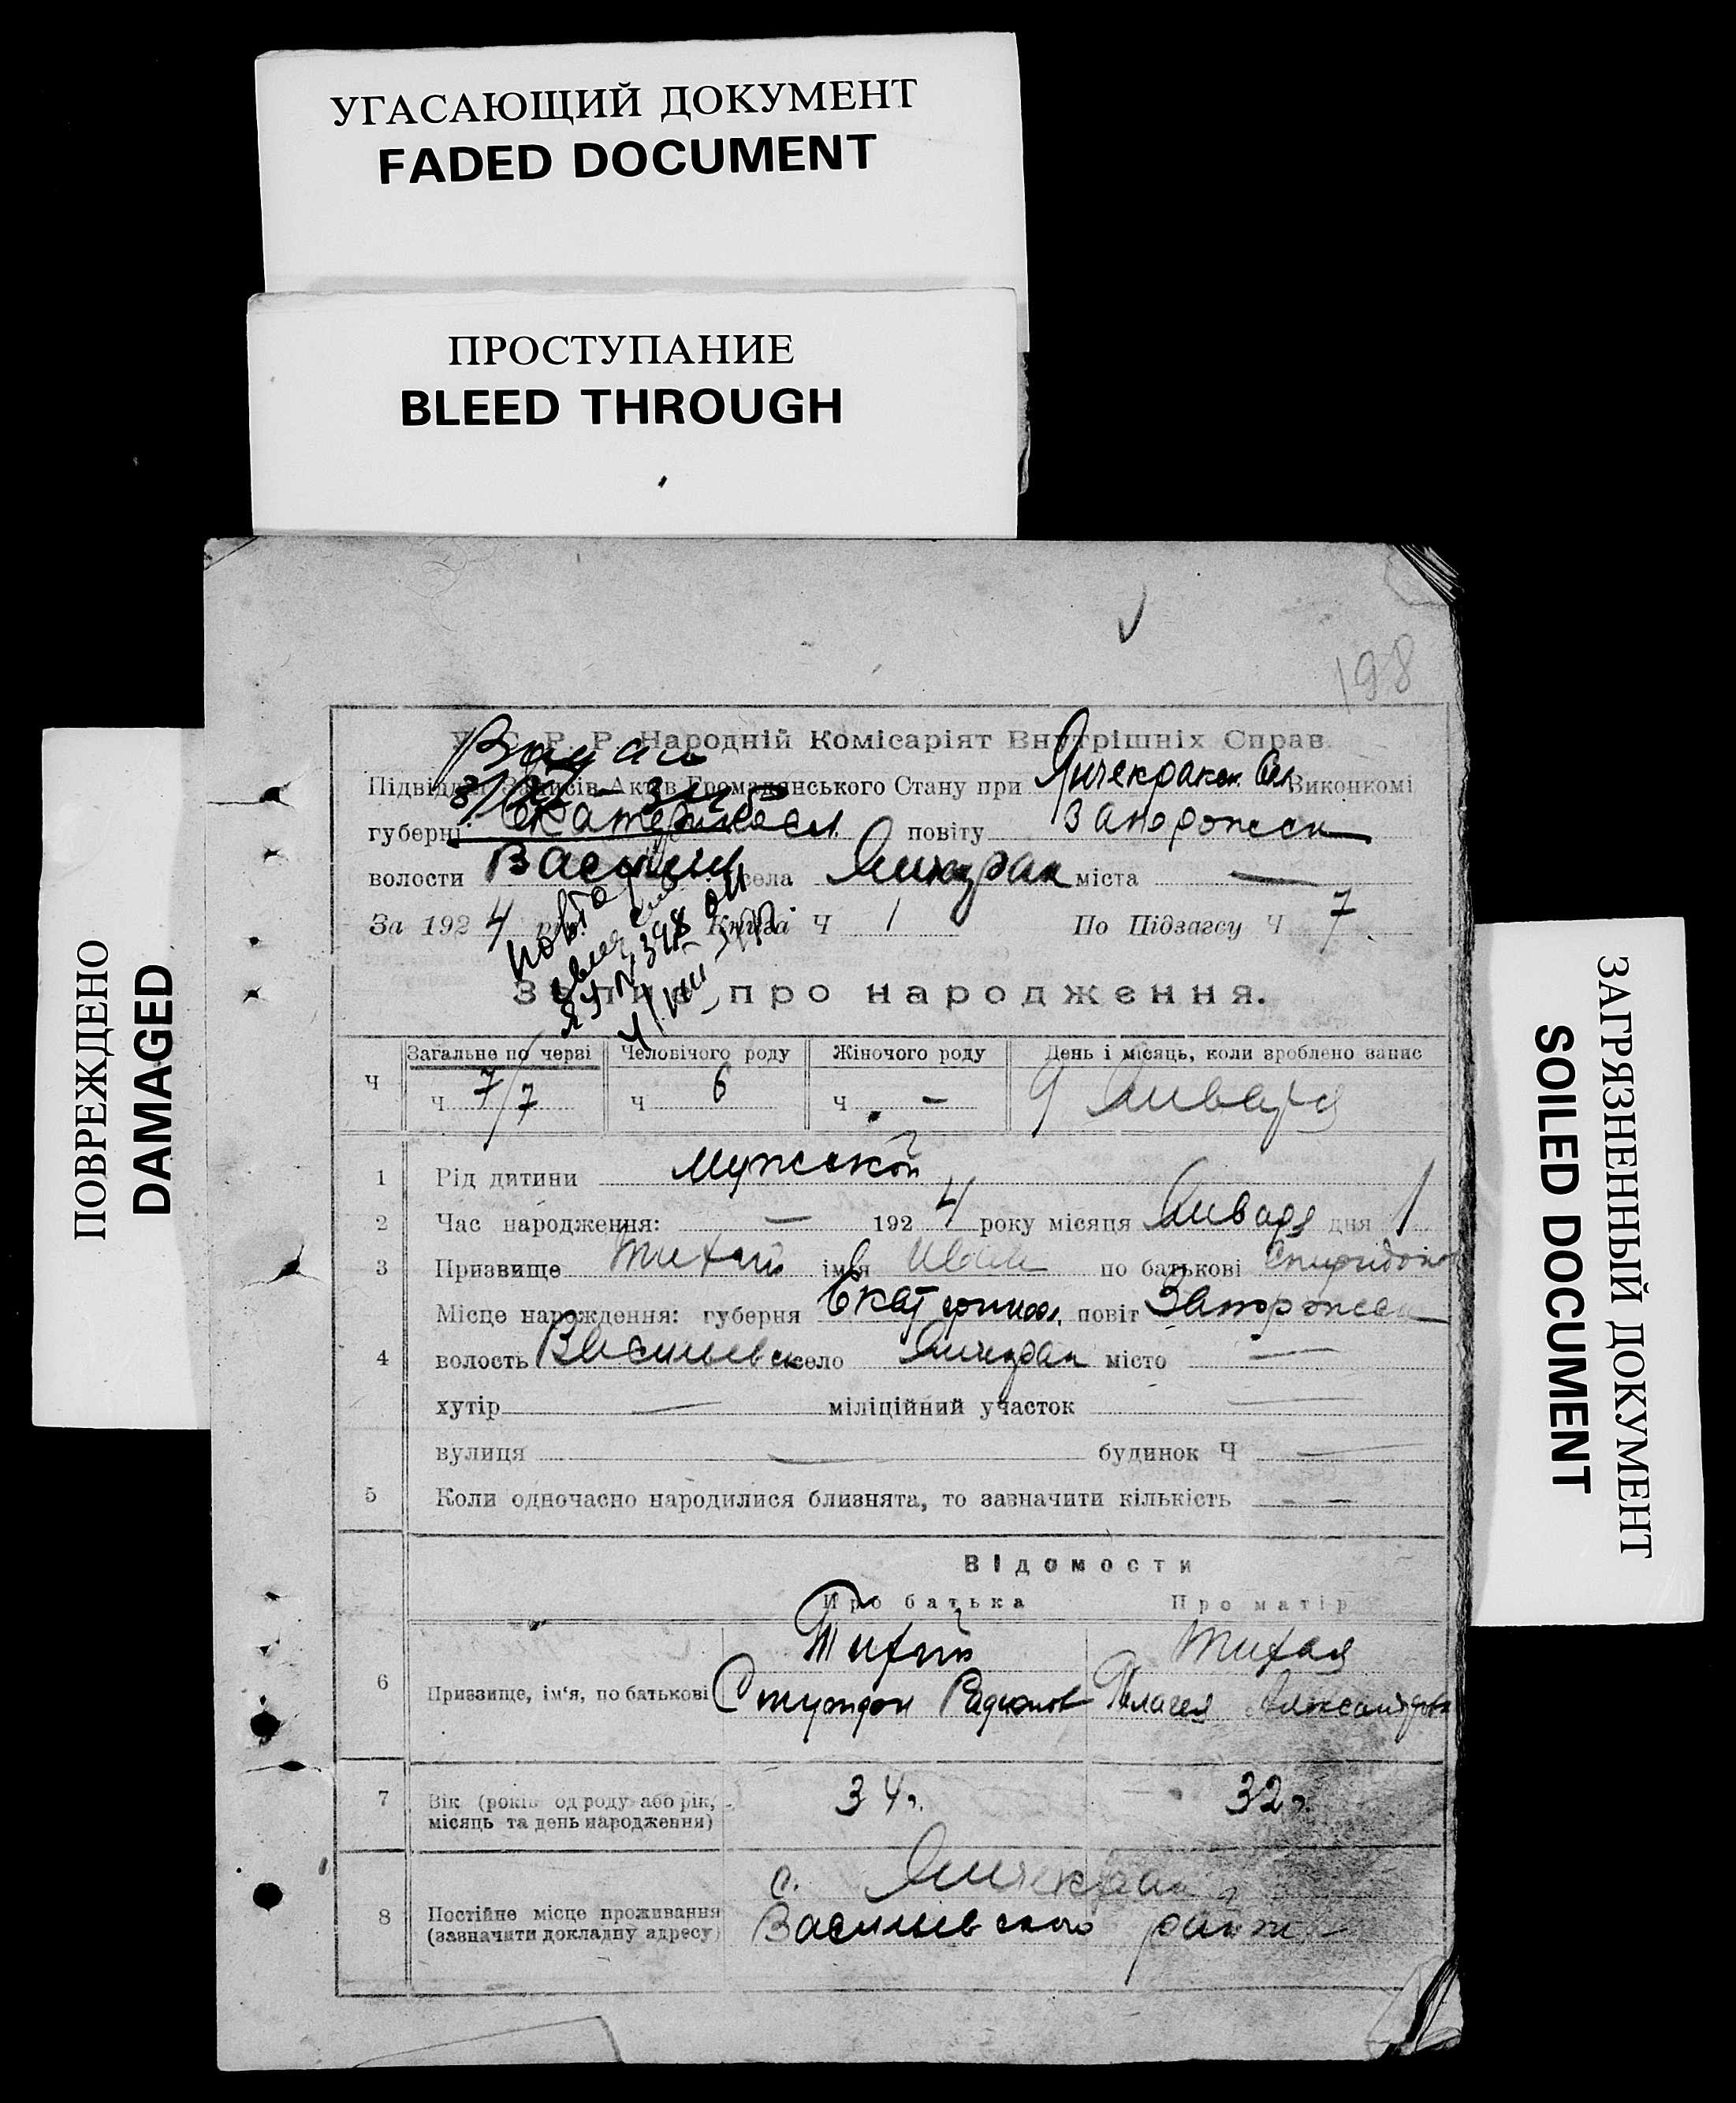 УГАСАЮЩИЙ ДОКУМЕНТ
FADED DOCUMENT
ПРОСТУПАНИЕ
BLEED THROUGH
ПОВРЕЖДЕНО
DAMAGED
ЗАГРЯЗНЕННЫЙ ДОКУМЕНТ
SOILED DOCUMENT
198
У. С. Р. Р. Народній Комісаріят Внутрішніх Справ.
Підвідділ Записів Актів Громадянського Стану при Янчекракск. Сел Виконкомі
губерні Екатериносл повіту Запорожск
волости Васильев села Янчекрак міста —
За 1924 рік. Книга Ч 1 По Підзагсу Ч 7
Запис про народження.
Загальне по черзі Человічого роду Жіночого роду День і місяць, коли зроблено запис
Ч Ч 7/7 Ч 6 Ч — 9 Января
1 Рід дитини Мужской
2 Час народження: — 1924 року місяця Января дня 1
3 Призвище Тихий ім'я Иван по батькові Спиридонов
Місце народження: губерня Екатеринос. повіт Запорожск
4 волость Васильевск село Янчекрак місто —
хутір — міліційний участок —
вулиця — будинок Ч —
5 Коли одночасно народилися близнята, то зазначити кількість — —
Відомости
Про батька Про матір
Тихий Тихая
6 Призвище, ім'я, по батькові Спиридон Радионов Пелагея Александровна
7 Вік (років од роду або рік, 34 г. 32 г.
місяць та день народження)
с. Янчекрак
8 Постійне місце проживання Васильевского района
(зазначити докладну адресу)